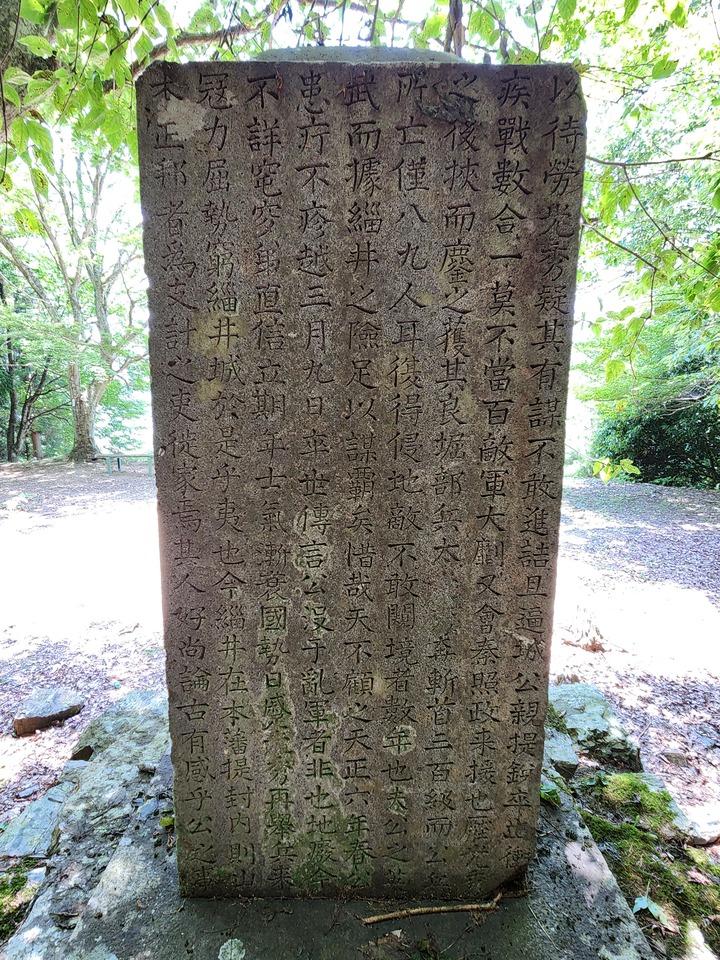 以待勞光秀疑其有謀不敢進詰旦逼城公親提鋭卒
疾戰數合一莫不當百敵軍大劚又會秦照政来援也
之後挾而鏖之獲其良堀部兵太 斬首三百級而公
所亡僅八九人耳後得侵地敵不敢闚境者數年也夫公之
武而據緇井之險足以謀霸矣惜哉天不顧之天正六年春
患疔不疹越三月九日卒世傳言公没于亂軍者非也地廢
不詳窀穸弟直信立期年士氣漸衰國勢日蹙 秀再擧兵来
寇力屈勢窮緇井城於是乎夷也今緇井在本藩提封内則
木正邦者為支計之吏従家焉其人好尚論古有感乎公之